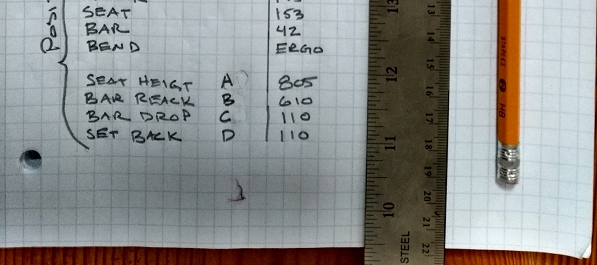 SEAT 153
BAR 42
BEND ERGO
SEAT HEIGT A 805
BAR REACK B 610
BAR DROP C 110
SET BACK D 110
13
12
11
10
13
14
15
16
17
18
19
20
21
22
STEEL
HB